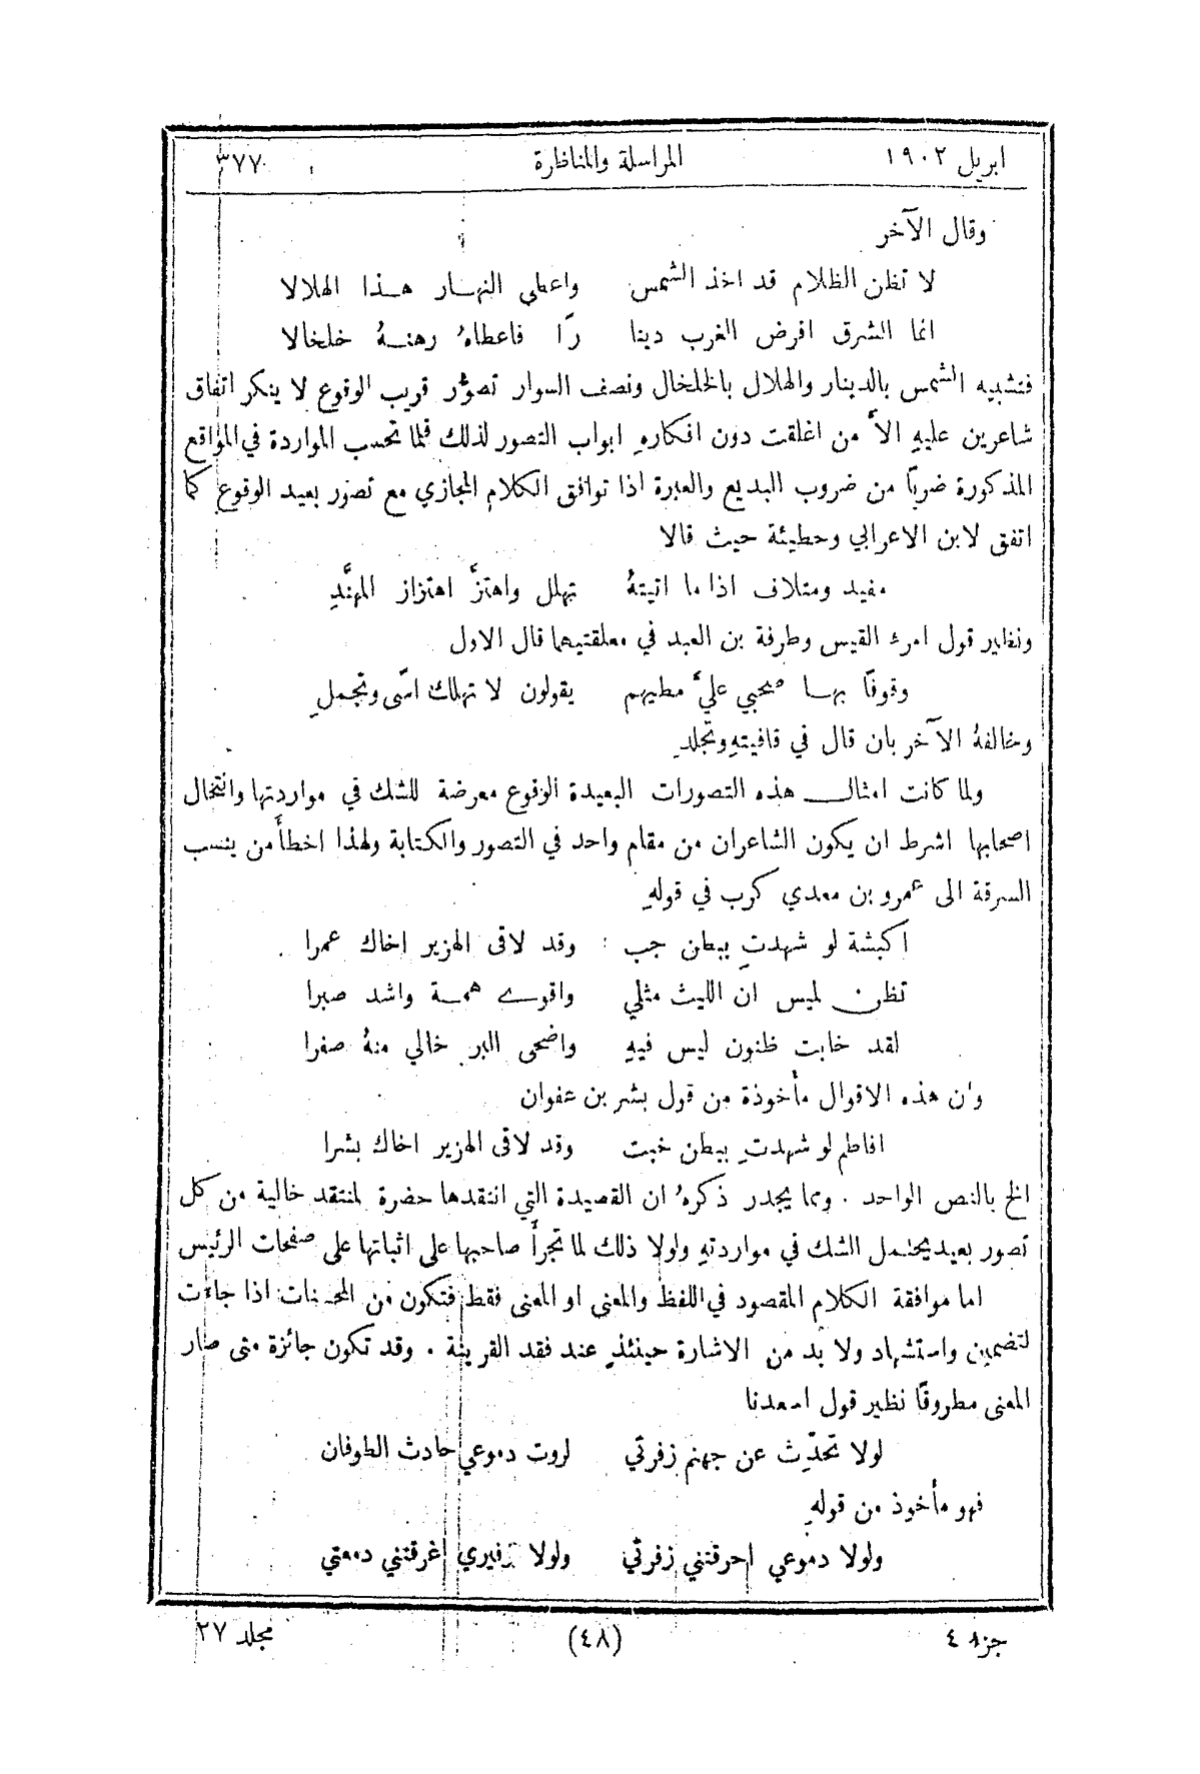 ابريل ١٩٠٢ المراسلة والمناظرة ٣٧٧
وقال الآخر
لا تظن الظلام قد اخذ الشمس واعطى النهـار هـذا الهلالا
انما الشرق اقرض الغرب دينا رًا فاعطاهُ رهنـهُ خلخالا
فتشبيه الشمس بالدينار والهلال بالخلخال ونصف السوار تصوُّر قريب الوقوع لا ينكر اتفاق
شاعرين عليهِ الاَّ من اغلقت دون افكارهِ ابواب التصور لذلك قلما تحسب المواردة في المواقع
المذكورة ضربًا من ضروب البديع والعبرة اذا توافق الكلام المجازي مع تصوّر بعيد الوقوع كما
اتفق لابن الاعرابي وحطيئة حيث قالا
مفيد ومتلاف اذا ما اتيتهُ تهلل واهتزَّ اهتزاز المهنَّدِ
ونظاير قول امرء القيس وطرفة بن العبد في معلقتيهما قال الاول
وقوفًا بهـا صحبي عليَّ مطيهم يقولون لا تهلك اسًى وتجملِ
وخالفهُ الآخر بان قال في قافيتهِ وتجلدِ
ولما كانت امثالـ هذه التصورات البعيدة الوقوع معرضة للشك في مواردتها وانتحال
اصحابها اشرط ان يكون الشاعران من مقام واحد في التصور والكتابة ولهذا اخطأَ من ينسب
السرقة الى عمرو بن معدي كرب في قولهِ
اكبشة لو شهدتِ ببطن جب وقد لاقى الهزبر اخاك عمرا
تظن لميس ان الليث مثلي واقوے همـة واشد صبرا
لقد خابت ظنون ليس فيهِ واضحى البر خالي منهُ صفرا
وان هذه الاقوال مأخوذة من قول بشر بن عفوان
افاطم لو شهدتِ ببطن خبت وقد لاقى الهزبر اخاك بشرا
الخ بالنص الواحد . ومما يجدر ذكرهُ ان القصيدة التي انتقدها حضرة لمنتقد خالية من كل
تصور بعيد يحتمل الشك في مواردتهِ ولولا ذلك لما تجرأَ صاحبها على اثباتها على صفحات الرئيس
اما موافقة الكلام المقصود في اللفظ والمعنى او المعنى فقط فتكون من المحسنات اذا جاءت
لتضمين واستشهاد ولا بد من الاشارة حينئذٍ عند فقد القرينة . وقد تكون جائزة متى صار
المعنى مطروقًا نظير قول اسعدنا
لولا تحدِّث عن جهنم زفرتي لروت دموعي حادث الطوفان
فهو مأخوذ من قولهِ
ولولا دموعي احرقتني زفرتي ولولا زفيري اغرقتني دمعتي
جزء ٤ (٤٨) مجلد ٢٧